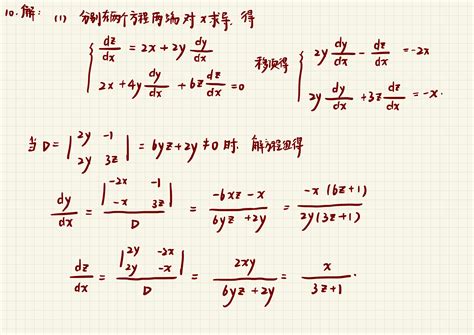 10. 解: (1) 分别在两个方程两端对 x 求导, 得
{ dz/dx = 2x + 2y dy/dx
2x + 4y dy/dx + 6z dz/dx = 0
移项得 { 2y dy/dx - dz/dx = -2x
2y dy/dx + 3z dz/dx = -x.
当 D = | 2y -1 ; 2y 3z | = 6yz + 2y ≠ 0 时, 解方程组得
dy/dx = | -2x -1 ; -x 3z | / D = (-6xz - x) / (6yz + 2y) = -x(6z+1) / 2y(3z+1)
dz/dx = | 2y -2x ; 2y -x | / D = 2xy / (6yz + 2y) = x / (3z+1).